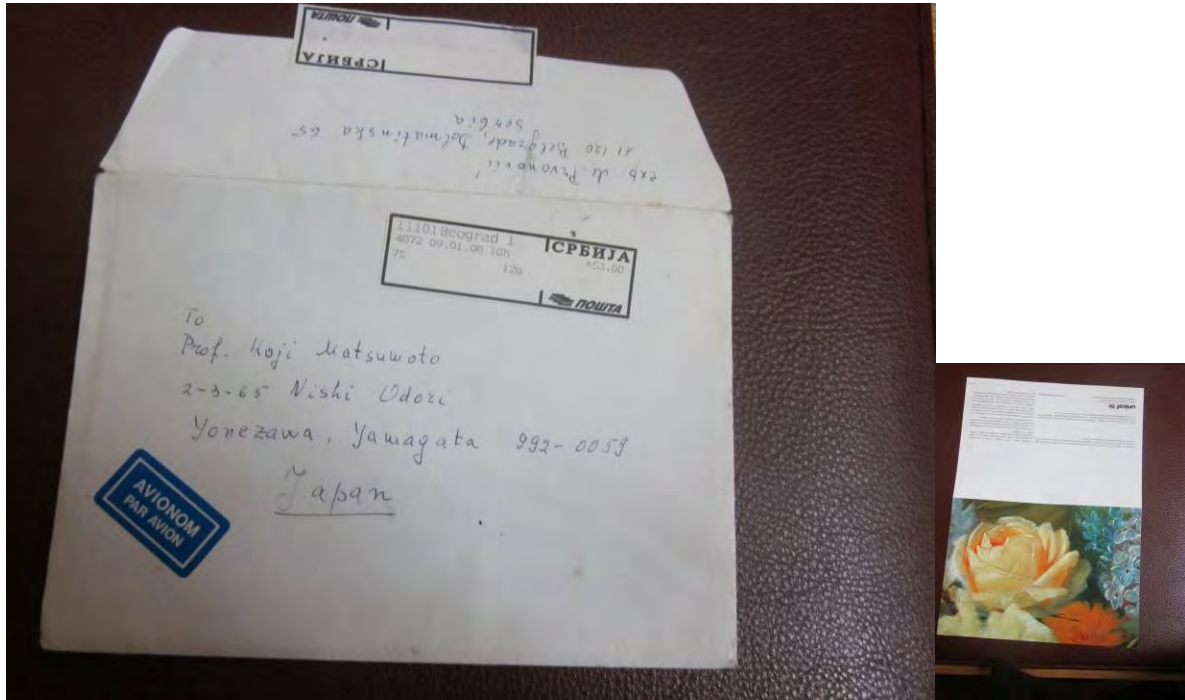 ПОШТА
СРБИЈА
exp. M. Prvanović
11 120 Belgrade, Dalmatinska 65
Serbia
11101 Beograd 1
4072 09.01.08 10h
75
12g
СРБИЈА
*53.00
ПОШТА
To
Prof. Koji Matsumoto
2-3-65 Nishi Odori
Yonezawa, Yamagata 992-0059
Japan
AVIONOM
PAR AVION
unicef